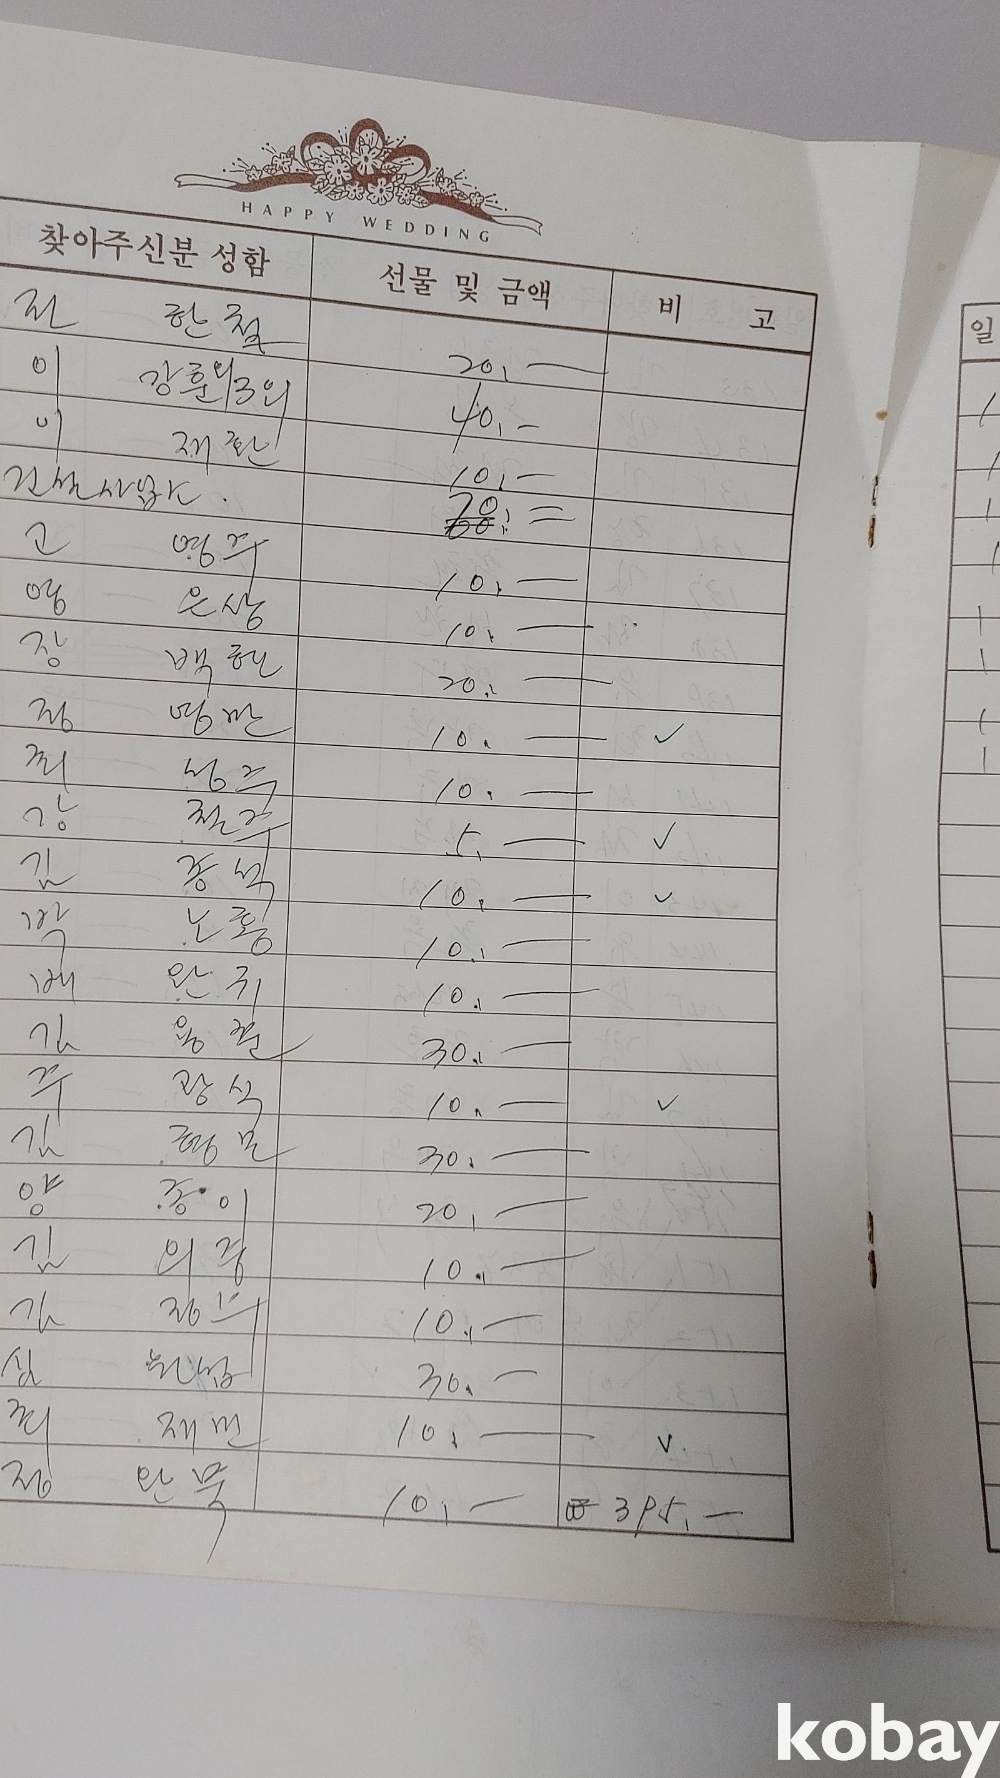 HAPPY WEDDING
찾아주신분 성함 선물 및 금액 비 고
전 한철 20,—
이 강훈외3인 40,—
이 재환 10,—
건설사업소.
고 영주 10,—
은상 10,—
장 백현 20,—
정 영만 10,— ✓
최 성주 10,—
강 철주 5,— ✓
김 종석 10,— ✓
박 노흥 10,—
배 완규 10,—
김 용환 30,—
주 광식 10,— ✓
김 형문 30,—
양 종이 20,—
김 의중 10,—
김 정수 10,—
심 30,—
최 재민 10,— ✓
정 완묵 10,— 395,—
일
kobay